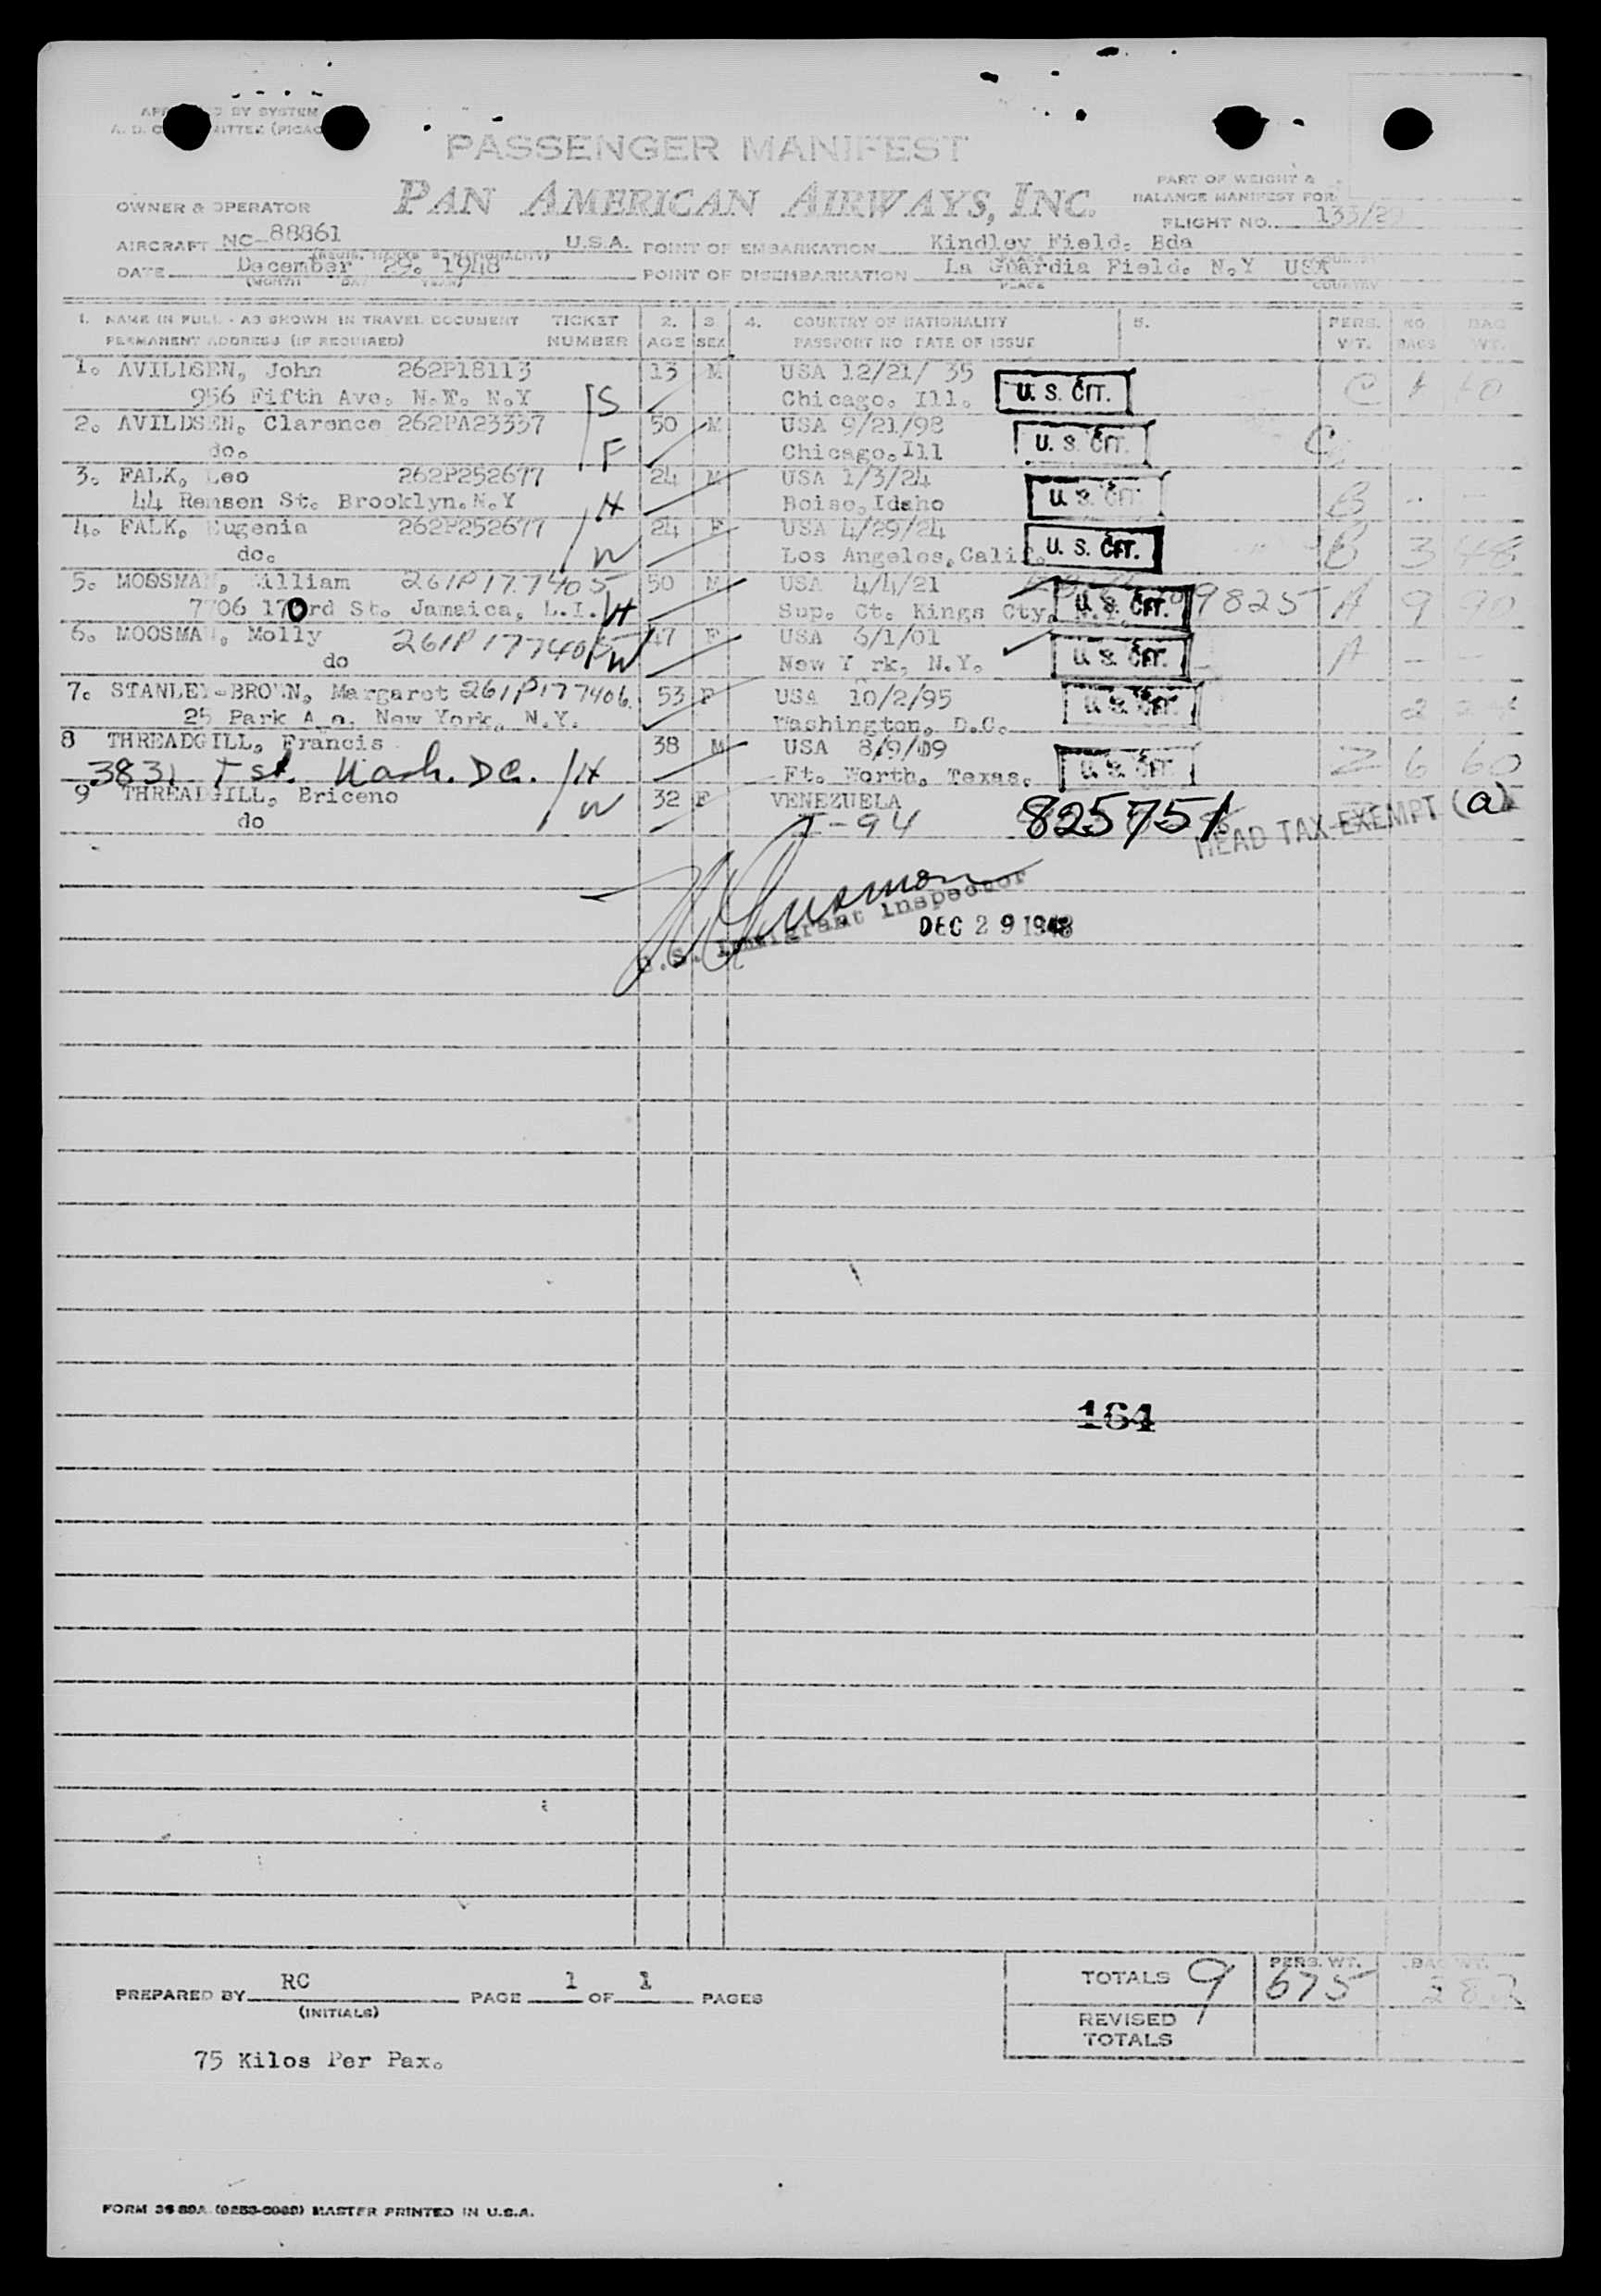 BY SYSTEM
PASSENGER MANIFEST
PAN AMERICAN AIRWAYS, INC.
PART OF WEIGHT &
BALANCE MANIFEST FOR
OWNER & OPERATOR
FLIGHT NO. 133/29
AIRCRAFT NC-88861 U.S.A. POINT OF EMBARKATION Kindley Field. Bda
DATE December 29. 1948 POINT OF DISEMBARKATION La Guardia Field. N.Y USA
(MONTH DAY YEAR) PLACE COUNTRY
1. NAME IN FULL - AS SHOWN IN TRAVEL DOCUMENT TICKET 2. 3 4. COUNTRY OF NATIONALITY 5. PERS. NO. BAG
PERMANENT ADDRESS (IF REQUIRED) NUMBER AGE SEX PASSPORT NO DATE OF ISSUE WT. BAGS WT.
1. AVILDSEN, John 262P18113 13 M USA 12/21/ 35
956 Fifth Ave. N.Y. N.Y S Chicago. Ill. U. S. CIT. C
2. AVILDSEN, Clarence 262PA23357 50 M USA 9/21/98
do. F Chicago.Ill U. S. CIT. C
3. FALK, Leo 262P252677 24 M USA 1/3/24
44 Remsen St. Brooklyn.N.Y H Boise,Idaho U. S. CIT. B - —
4. FALK, Eugenia 262P252677 24 F USA 4/29/24
do. W Los Angeles,Calif. U. S. CIT. B 3 48
5. MOOSMAN, William 261P177405 50 M USA 4/4/21
7706 170rd St. Jamaica, L.I. H Sup. Ct. Kings Cty. N.Y. U. S. CIT. 9825 A 9 90
6. MOOSMAN, Molly 261P177405 47 F USA 6/1/01
do W New Y rk, N.Y. U. S. CIT. A — —
7. STANLEY-BROWN, Margaret 261P177406 53 F USA 10/2/95
25 Park A e. New York, N.Y. Washington, D.C. U. S. CIT. 2
8 THREADGILL, Francis 38 M USA 8/9/09
3831 T st. Wash. DC. H Ft. Worth, Texas. U. S. CIT. Z 6 60
9 THREADGILL, Briceno 32 F VENEZUELA
do W I-94 825751 HEAD TAX EXEMPT (a)
U.S. Immigrant Inspector
DEC 29 1948
164
PREPARED BY RC PAGE 1 OF 1 PAGES
(INITIALS)
TOTALS 9 PERS. WT. 675 BAG WT. 282
REVISED
TOTALS
75 Kilos Per Pax.
MASTER PRINTED IN U.S.A.